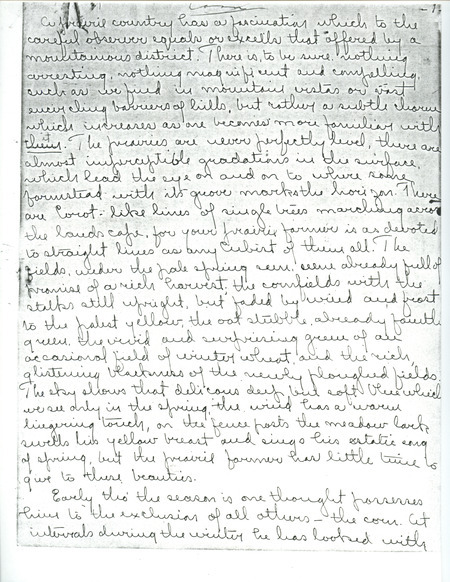 A prairie country has a fascination which to the
careful observer equals or excells that offered by a
mountainous district. There is, to be sure, nothing
arresting, nothing magnificent and compelling,
such as we find in mountain vistas or vast
encircling barriers of hills, but rather a subtle charm
which increases as one becomes more familiar with
The prairies are never perfectly level, there are
almost imperceptible gradations in the surface,
which lead the eye on and on to where some
farmstead with its grove marks the horizon. There
are Corot-like lines of single trees marching across
the landscape, for your prairie farmer is as devoted
to straight lines as any cubist of them all. The
fields, under the pale spring sun, seem already full of
promise of a rich harvest, the cornfields with the
stalks still upright, but faded by wind and frost
to the palest yellow, the oat stubble, already faintly
green, the vivid and surprising green of an
occasional field of winter wheat, and the rich,
glistening blackness of the newly ploughed fields.
The sky shows that delicous deep but soft blue which
we see only in the spring, the wind has a warm
lingering touch, on the fence posts the meadow lark
swells his yellow breast and sings his estatic song
of spring, but the prairie farmer has little time to
give to these beauties.
Early tho' the season is one thought possesses
him to the exclusion of all others - the corn. At
intervals during the winter he has looked with